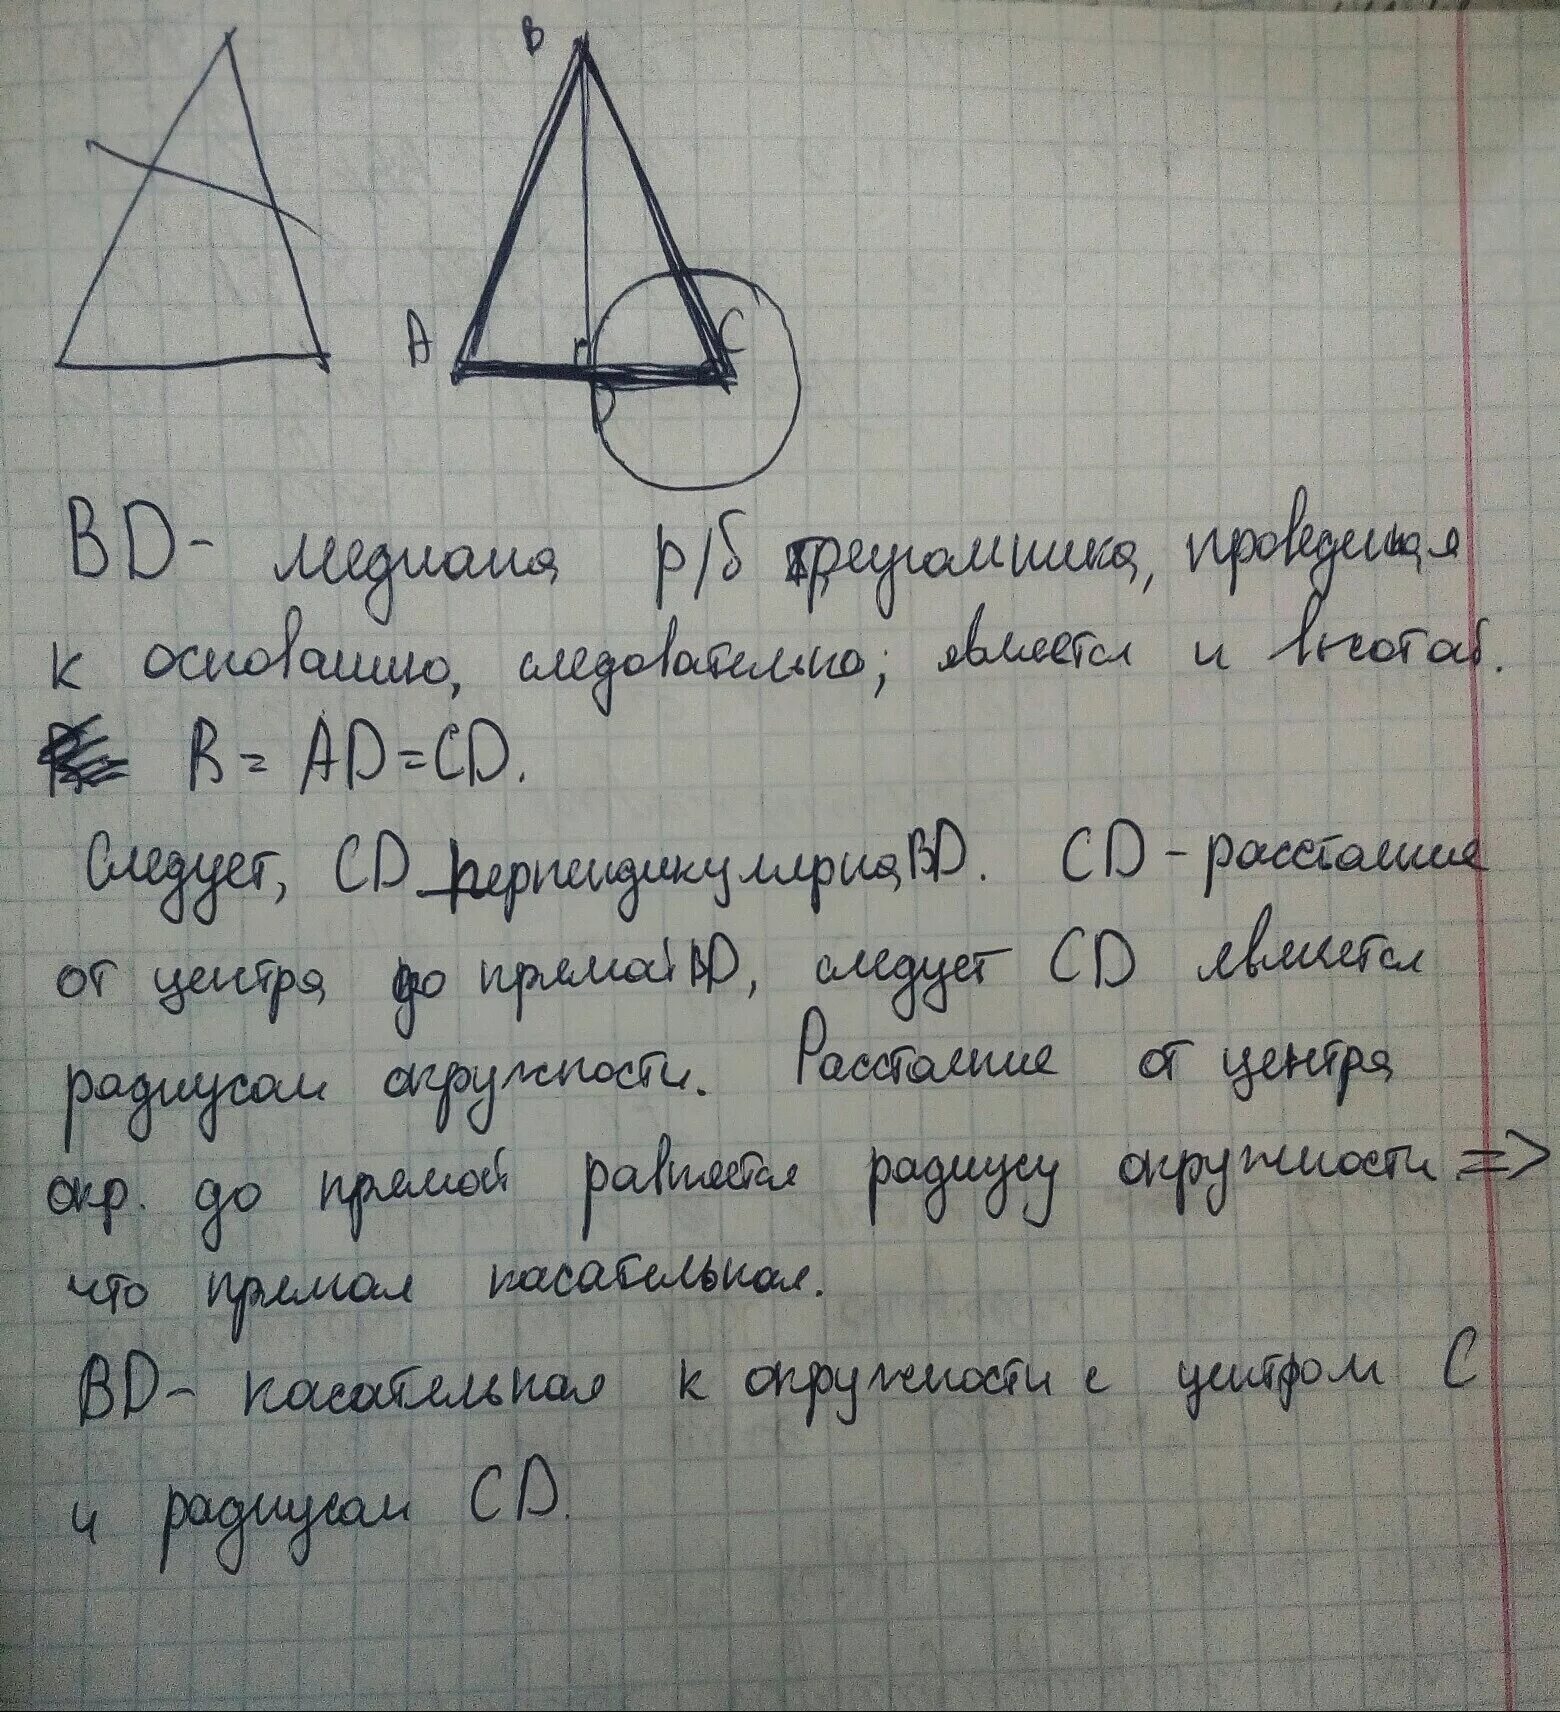 B
A
C
D
BD - медиана р/б треугольника, проведенная
к основанию, следовательно, является и высотой.
В = AD = CD.
Следует, CD перпендикулярна BD. CD - расстояние
от центра до прямой BD, следует CD является
радиусом окружности. Расстояние от центра
окр. до прямой равняется радиусу окружности =>
что прямая касательная.
BD - касательная к окружности с центром С
и радиусом CD.